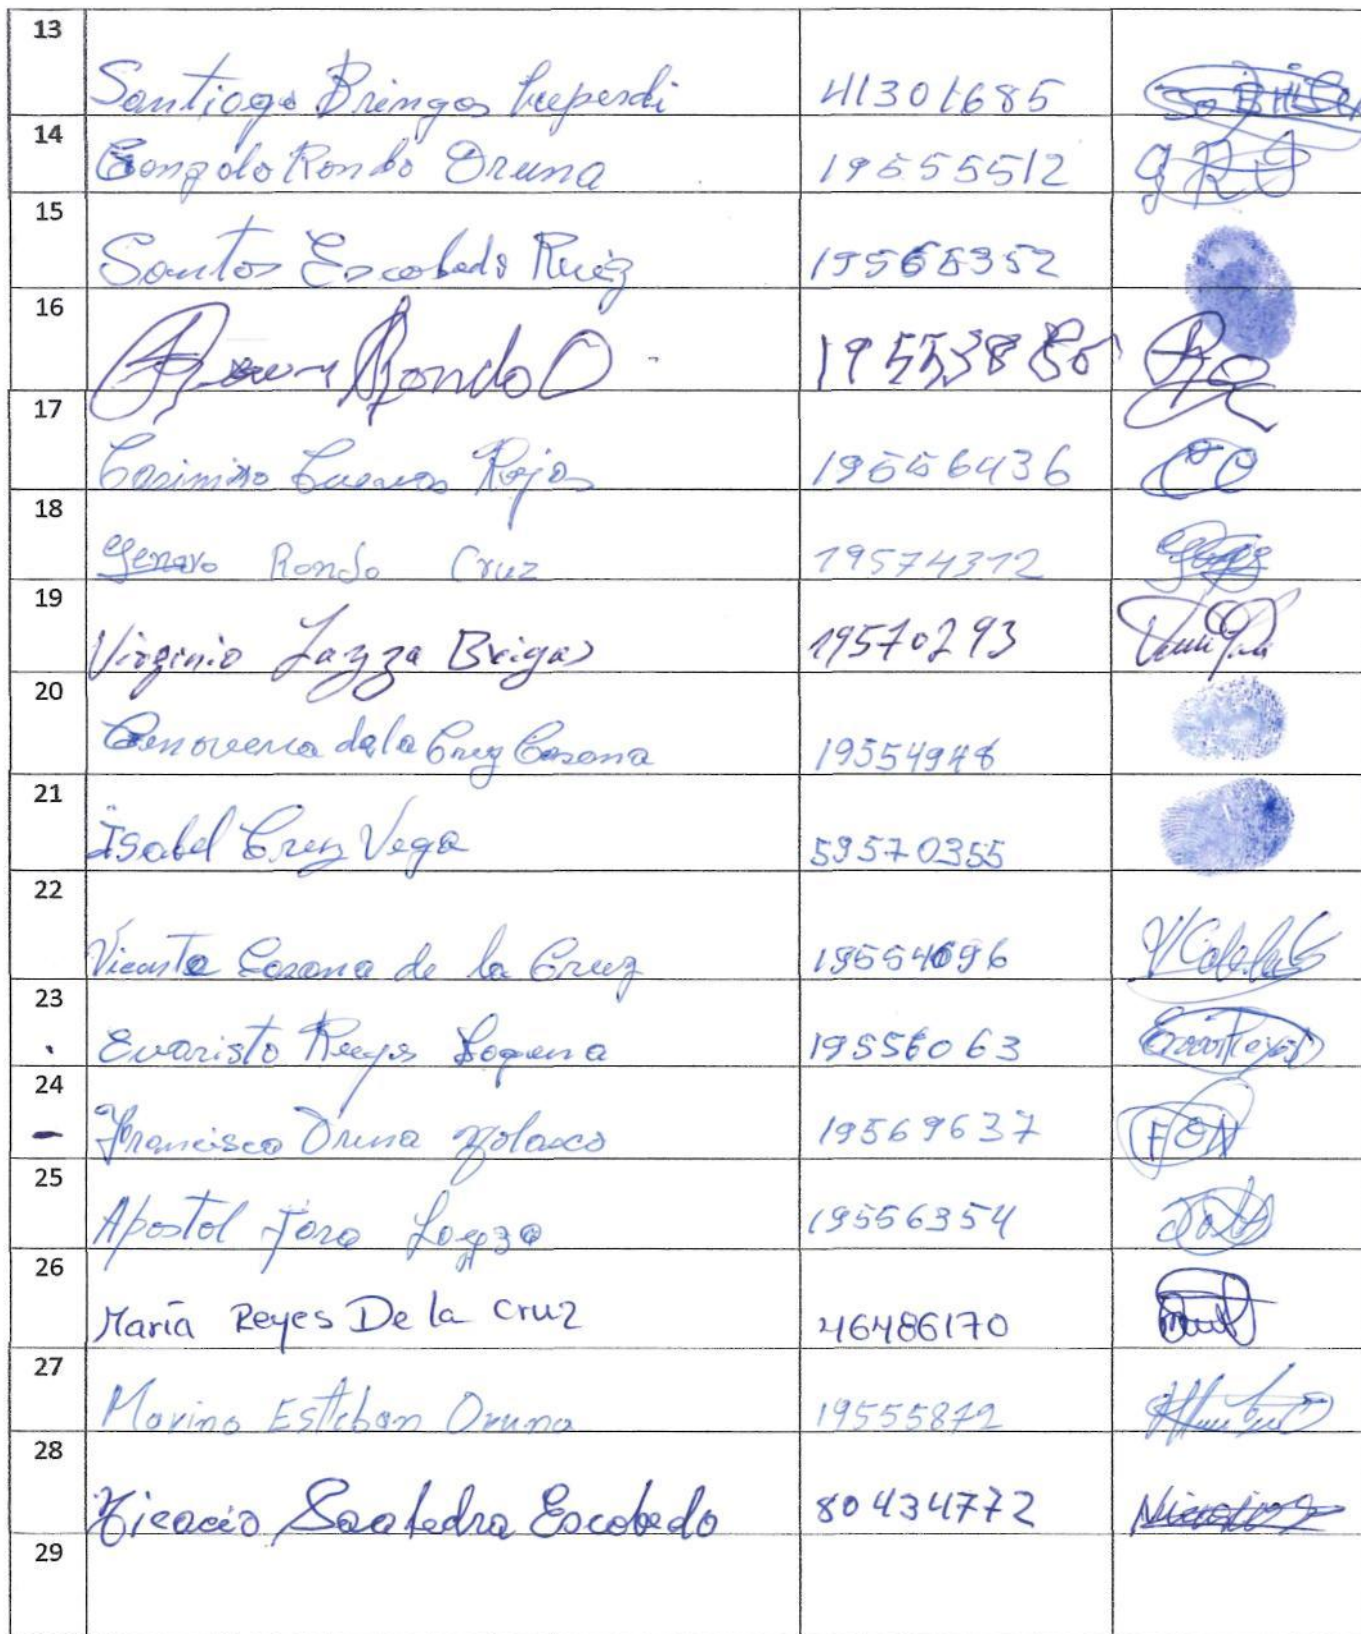 13 Santiago Bringas Luperdi 41301685
14 Gonzalo Rondo Oruna 19555512 GRO
15 Santos Escobedo Ruíz 19568352
16 Rondo O
17 Casimiro Cuevas Rojas 19556436
18 Genaro Rondo Cruz 19574312
19 Virginio Layza Brigas 19570293
20 Genoveva de la Cruz Casana 19554948
21 Isabel Cruz Vega 59570355
22 Vicente Casana de la Cruz 19554696
23 Evaristo Reyes 19556063
24 Francisco Oruna Nolasco 19569637 FON
25 Apostol Jara Layza 19556354
26 María Reyes De la Cruz 46486170
27 Marino Esteban Oruna 19555872
28 Nicacio Saabedra Escobedo 80434772
29